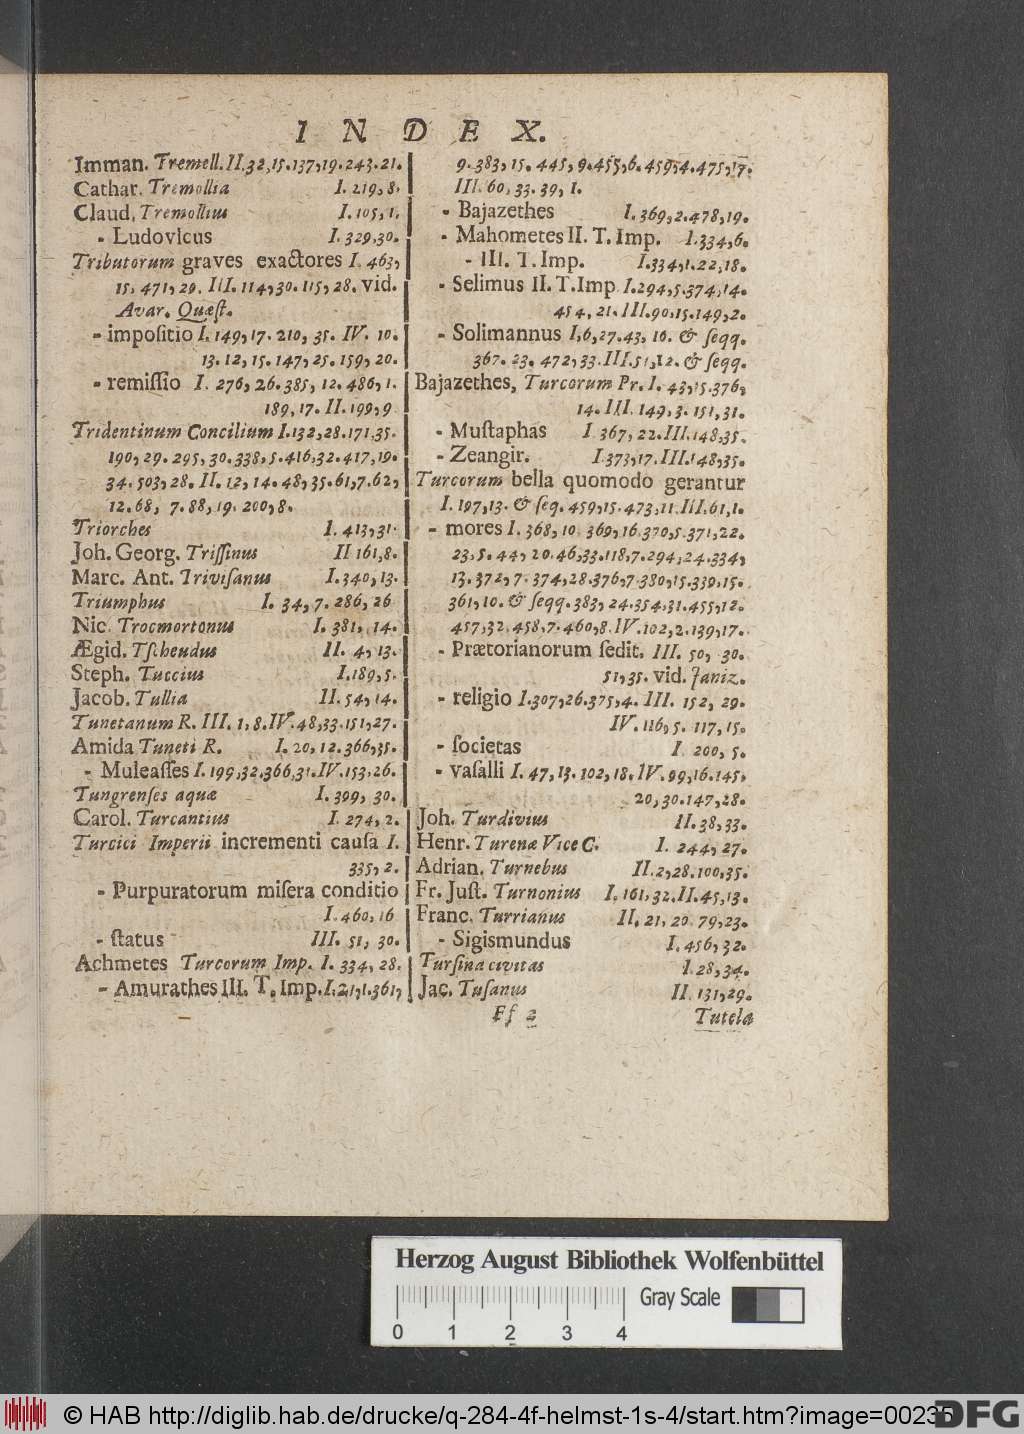 INDEX.
Imman. Tremell. II.32,15.137,19.243.21.
Cathar. Tremollia I.219,8.
Claud. Tremollius I.105,1.
- Ludovicus I.329,30.
Tributorum graves exactores I.463,
15.471,29.III.114,30.115,28. vid.
Avar. Quæst.
- impositio I.149,17.210,35.IV.10.
13.12,15.147,25.159,20.
- remissio I.276,26.385,12.486,1.
189,17.II.199,9
Tridentinum Concilium I.132,28.171.35.
190,29.295,30.338,5.416,32.417,19.
34.503,28.II.12,14.48,35.61,7.62,
12.68,7.88,19.200,8.
Triorches I.413,31.
Joh. Georg. Trissinus II 161,8.
Marc. Ant. Trivisanus I.340,13.
Triumphus I.34,7.286,26
Nic. Trocmortonus I.381,14.
Ægid. Tschendus II.4,13.
Steph. Tuccius I.189,5.
Jacob. Tullia II.54,14.
Tunetanum R. III.1,8.IV.48,33.151,27.
Amida Tuneti R. I.20,12.366,35.
- Muleasses I.199,32.366,31.IV.153,26.
Tungrenses aquæ I.399,30.
Carol. Turcantius I.274,2.
Turcici Imperii incrementi causa I.
335,2.
- Purpuratorum misera conditio
I.460,16
- status III.51,30.
Achmetes Turcorum Imp. I.334,28.
- Amurathes III. T. Imp. I.21,1.361,
9.383,15.445,9.455,6.459,4.475,17.
III.60,33.39,1.
- Bajazethes I.369,2.478,19.
- Mahometes II. T. Imp. I.334,6.
- III. T. Imp. I.334,1.22,18.
- Selimus II. T. Imp I.294,5.374,14.
454,21.III.90,15.149,2.
- Solimannus I,6,27.43,16. & seqq.
367.23.472,33.III.51,12. & seqq.
Bajazethes, Turcorum Pr. I.43,15.376,
14.III.149,3.151,31.
- Mustaphas I 367,22.III.148,35.
- Zeangir. I.373,17.III.148,35.
Turcorum bella quomodo gerantur
I.197,13. & seq. 459,15.473,11.III.61,1.
- mores I.368,10.369,16.370,5.371,22.
23,5.44,20.46,33.118,7.294,24.334,
13.372,7.374,28.376,7.380,15.339,15.
361,10. & seqq. 383,24.354,31.455,12.
457,32.458,7.460,8.IV.102,2.139,17.
- Prætorianorum sedit. III.50,30.
51,35. vid. Janiz.
- religio I.307,26.375,4.III.152,29.
IV.116,5.117,15.
- societas I 200,5.
- vasalli I.47,13.102,18.IV.99,16.145,
20,30.147,28.
Joh. Turdivius II.38,33.
Henr. Turenæ Vice C. I.244,27.
Adrian. Turnebus II.2,28.100,35.
Fr. Just. Turnonius I.161,32.II.45,13.
Franc. Turrianus II.21,20.79,23.
- Sigismundus I.456,32.
Tursina civitas I.28,34.
Jac. Tusanus II.131,29.
Ff 2 Tutela
Herzog August Bibliothek Wolfenbüttel
Gray Scale
0 1 2 3 4
© HAB http://diglib.hab.de/drucke/q-284-4f-helmst-1s-4/start.htm?image=00235
DFG